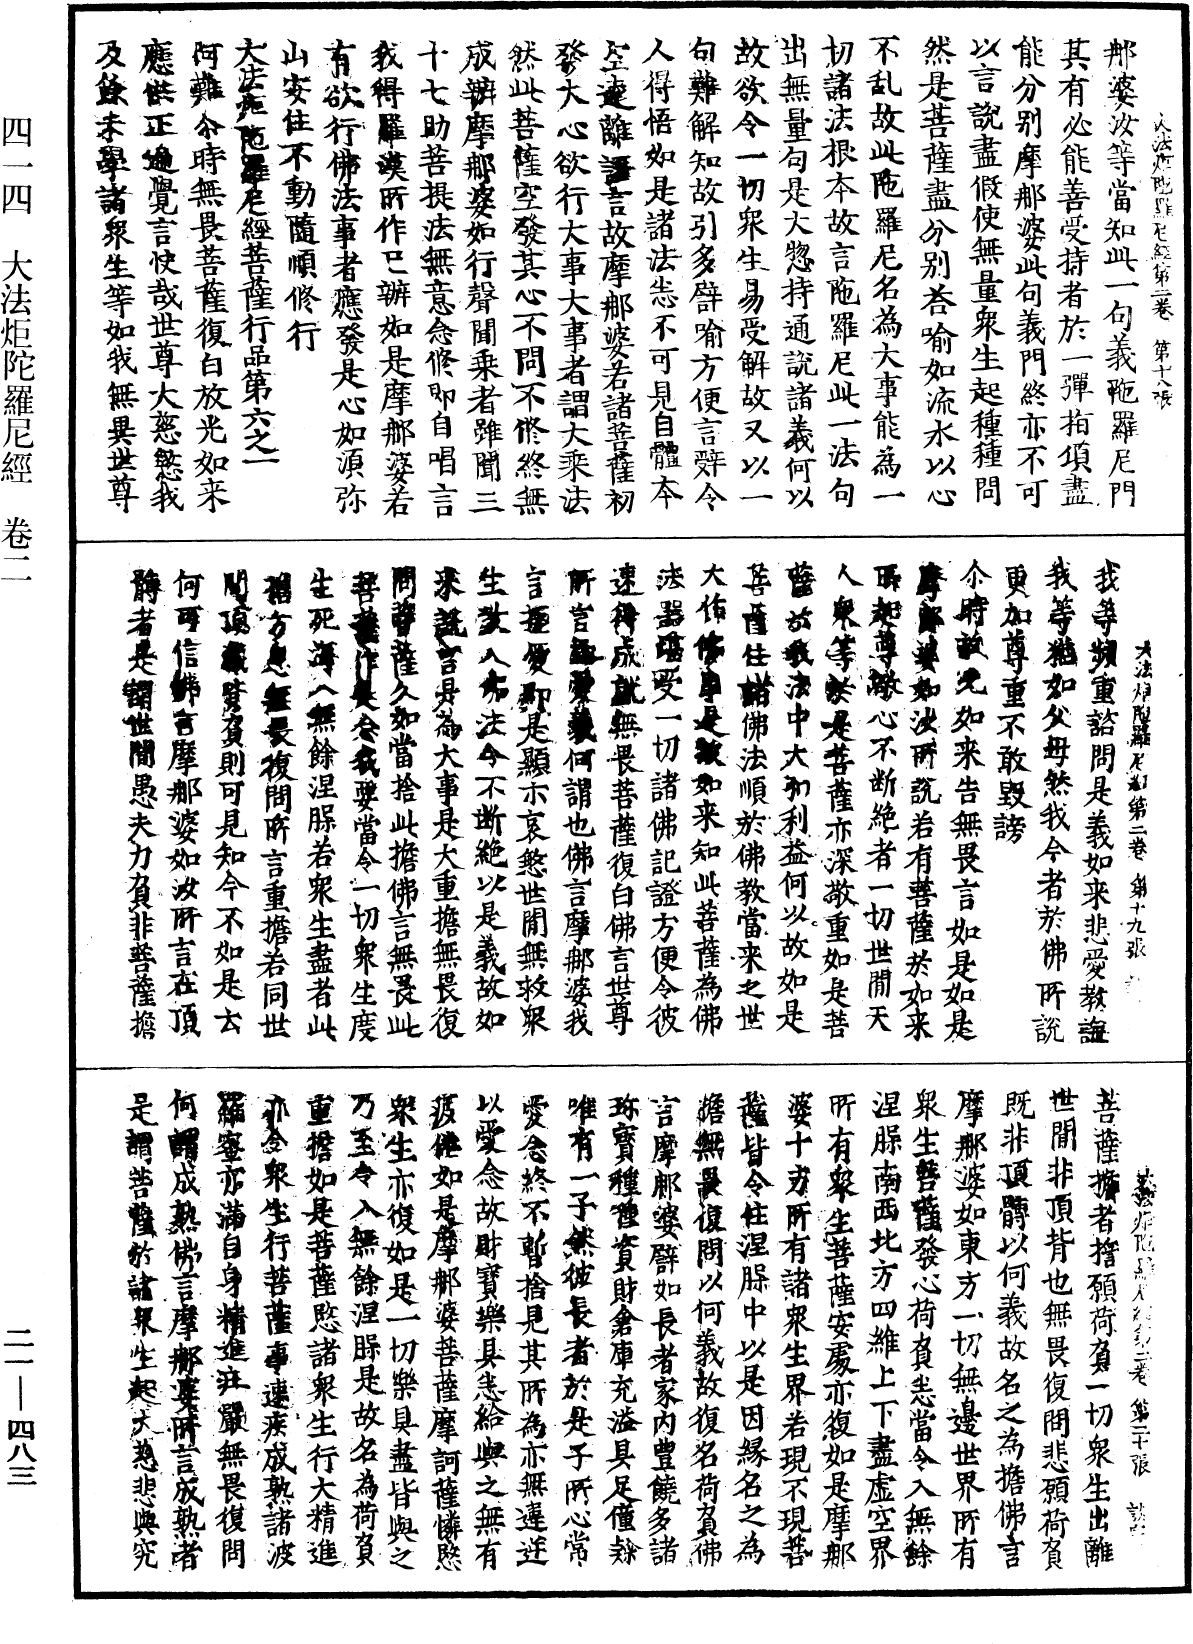 大法炬陀羅尼經第二卷　第十八張
那婆汝等當知此一句義陁羅尼門
其有必能善受持者於一彈指頃盡
能分别摩那婆此句義門終亦不可
以言說盡假使無量衆生起種種問
然是菩薩盡分别荅喻如流水以心
不乱故此陁羅尼名為大事能為一
切諸法根本故言陁羅尼此一法句
出無量句是大惣持通說諸義何以
故欲令一切衆生易受解故又以一
句難解知故引多譬喻方便言辤令
人得悟如是諸法悉不可見自體本
空遠離語言故摩那婆若諸菩薩初
發大心欲行大事大事者謂大乘法
然此菩薩空發其心不問不修終無
成辦摩那婆如行聲聞乘者雖聞三
十七助菩提法無意念修即自唱言
我得羅漢所作已辦如是摩那婆若
有欲行佛法事者應發是心如須弥
山安住不動隨順修行
大法炬陁羅尼經菩薩行品第六之一
阿難尒時無畏菩薩復白放光如来
應供正遍覺言快哉世尊大慈愍我
及餘未學諸衆生等如我無異世尊
大法炬陁羅尼經第二卷　第十九張
我等頻重諮問是義如来悲愛教誨
我等猶如父母然我今者於佛所說
更加尊重不敢毀謗
尒時放光如来告無畏言如是如是
摩那婆如汝所說若有菩薩於如来
所起尊敬心不断絶者一切世間天
人衆等於是菩薩亦深敬重如是菩
薩於我法中大切利益何以故如是
菩薩住諸佛法順於佛教當来之世
大作佛事是故如来知此菩薩為佛
法器堪受一切諸佛記證方便令彼
速得成就無畏菩薩復白佛言世尊
所言極愛義何謂也佛言摩那婆我
言極愛即是顯示哀愍世間無救衆
生故入佛法令不断絶以是義故如
来説言是為大事是大重擔無畏復
問菩薩久如當捨此擔佛言無畏此
菩薩作是念我要當令一切衆生度
生死海入無餘涅脲若衆生盡者此
擔方息無畏復問所言重擔若同世
間頂戴背負則可見知今不如是云
何可信佛言摩那婆如汝所言在頂
髆者是謂世間愚夫力負非菩薩擔
大法炬陁羅尼經第二卷　第二十張
菩薩擔者擔願荷負一切衆生出離
世間非頂背也無畏復問悲願荷負
既非頂髆以何義故名之為擔佛言
摩那婆如東方一切無邊世界所有
衆生菩薩發心荷負悉當令入無餘
涅脲南西北方四維上下盡虚空界
所有衆生菩薩安處亦復如是摩那
婆十方所有諸衆生界若現不現菩
薩皆令住涅脲中以是因緣名之為
擔無畏復問以何義故復名荷負佛
言摩那婆譬如長者家内豊饒多諸
珎寳種種資財倉庫充溢具足僮僕
唯有一子然彼長者於是子所心常
愛念終不暫捨見其所為亦無違迕
以愛念故財寳樂具悉給與之無有
疲惓如是摩那婆菩薩摩訶薩憐愍
衆生亦復如是一切樂具盡皆與之
乃至令入無餘涅脲是故名為荷負
重擔如是菩薩愍諸衆生行大精進
亦令衆生行菩薩事速疾成熟諸波
羅蜜亦滿自身精進莊嚴無畏復問
何謂成熟佛言摩那婆所言成熟者
是謂菩薩於諸衆生起大慈悲與究
四一四　大法炬陀羅尼經　卷二
二一—四八三